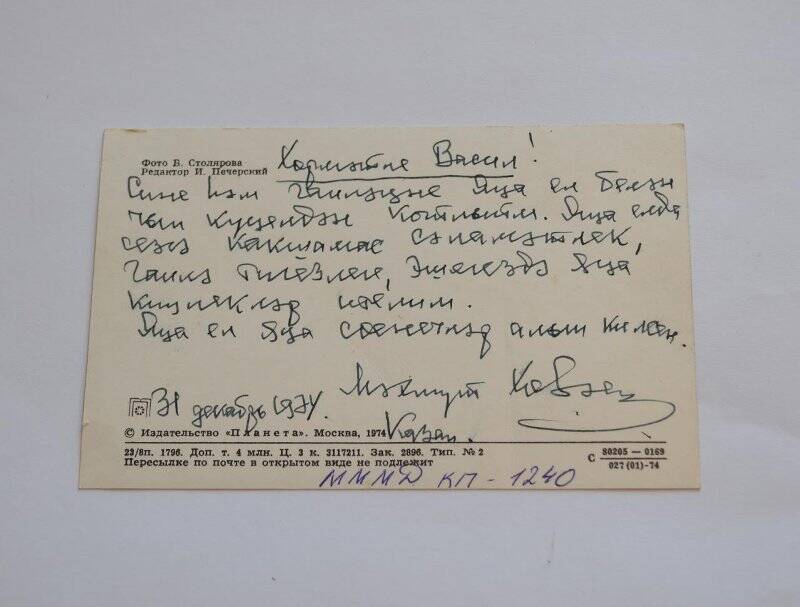 Фото В. Столярова
Редактор И. Печерский
Хөрмәтле Васил!
Сине һәм гаиләңне Яңа ел белән
чын күңелдән котлыйм. Яңа елда
сезгә какшамас сәламәтлек,
гаилә тигезлеге, эшегездә яңа
биеклекләр телим.
Яңа ел яңа сөенечләр алып килсен.
Мәхмүт Хөсәен
31 декабрь 1974.
Казан.
© Издательство «Планета». Москва, 1974
23/8п. 1796. Доп. т. 4 млн. Ц. 3 к. 3117211. Зак. 2896. Тип. № 2
Пересылке по почте в открытом виде не подлежит
С 80205—0169
027 (01)-74
МММД КП - 1240